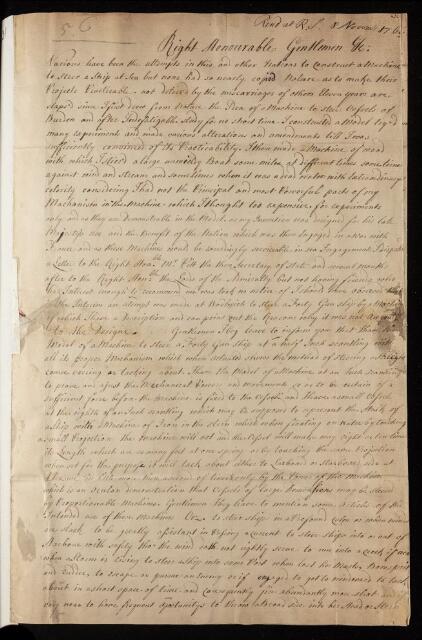 56
Read at R.S. 8 Novem 176
Right Honourable Gentlemen &c:
Various have been the attempts in this and other Nations to Construct a Machine
to steer a Ship at Sea but none had so nearly copied Nature as to make their
Projects Practicable not deterred by the miscarriages of others Eleven years are
elapsed since I first drew from Nature the Idea of a Machine to steer Vessels of
Burden and after Indefatigable Study for no short time I constructed a Model try'd
many experiments and made various alterations and amendments till I was
sufficiently convinced of the Practicability I then made a Machine of wood
with which I steered a large unwieldy Boat some miles at different times sometimes
against wind and stream and sometimes when it was a dead water with extraordinary
celerity considering I had not the Principal and most Powerful parts of my
Mechanism in this Machine which I thought too expensive for experiments
only and as they are Demonstrable in the Model, as my Invention was designed for his late
Majestys use and the Benefit of the Nation which was then engaged in a War with
France and as these Machines would be exceedingly serviceable in sea Engagements I
a Letter to the Right Honble Mr Pitt the then Secretary of State and several months
after to the Right Honble the Lords of the Admiralty but not having friends who
had Interest enough to recommend me was took no notice of
the Interim an attempt was made at Woolwich to steer a Forty Gun ship by a Machine
of which I have a Description and can point out the Reasons why it was not
to the Designe. Gentlemen I beg leave to inform you that I have
Model of a Machine to steer a Forty Gun ship at a half Inch scantling with
all its proper Mechanism which when
course veering or tacking about I have the Model of a Machine at an Inch scantling
to prove and adjust the Mechanical Powers and movements so as to be certain of a
sufficient force before the machine is fixed to the Vessel and I have a small Vessel
at the eighth of an Inch scantling which may be supposed to represent the
a Ship with a Machine of Iron in the stern which when floating on water by touching
a small Projection the Machine will act and the Vessel will make
its Length which are as many feet at one spring or by touching the same Projection
when set for the purpose it will tack about either to Larboard or Starboard side
by the Power of this machine
which is an ocular demonstration that Vessels of large Dimensions may be steered
by Proportionable Machines. Gentlemen I beg leave to mention some Articles of the
intended use of these Machines. Viz. to steer ships in a Profound Calm or when wind
are slack to be greatly assistant in veering a current to steer ships into or out of
Harbour with safety tho' the wind doth not rightly serve to run into a Creek if
when a storm is rising to steer a ship into some Port when lost her Masts, Bowsprit
and rudder, to escape or pursue an enemy or if engaged to get to windward to tack
about in a short space of time and consequently fire abundantly more shot and
very near to have frequent oportunitys to throw in